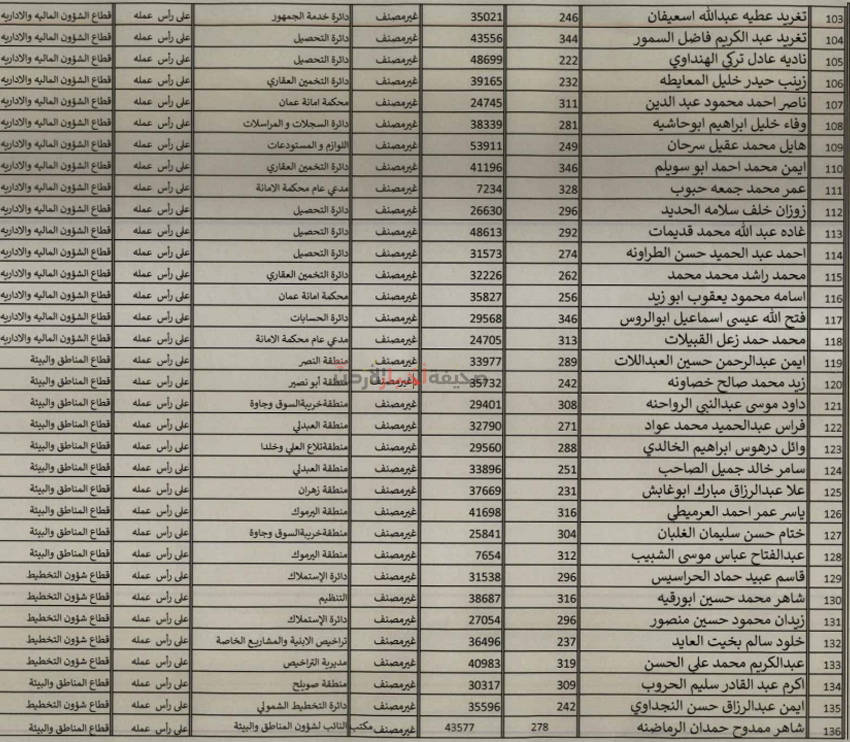 103 تغريد عطيه عبدالله اسعيفان 246 35021 غيرمصنف دائرة خدمة الجمهور على رأس عمله قطاع الشؤون الماليه والاداريه
104 تغريد عبد الكريم فاضل السمور 344 43556 غيرمصنف دائرة التحصيل على رأس عمله قطاع الشؤون الماليه والاداريه
105 ناديه عادل تركي الهنداوي 222 48699 غيرمصنف دائرة التحصيل على رأس عمله قطاع الشؤون الماليه والاداريه
106 زينب حيدر خليل المعايطه 232 39165 غيرمصنف دائرة التخمين العقاري على رأس عمله قطاع الشؤون الماليه والاداريه
107 ناصر احمد محمود عبد الدين 311 24745 غيرمصنف محكمة امانة عمان على رأس عمله قطاع الشؤون الماليه والاداريه
108 وفاء خليل ابراهيم ابوحاشيه 281 38339 غيرمصنف دائرة السجلات و المراسلات على رأس عمله قطاع الشؤون الماليه والاداريه
109 هايل محمد عقيل سرحان 249 53911 غيرمصنف اللوازم و المستودعات على رأس عمله قطاع الشؤون الماليه والاداريه
110 ايمن محمد احمد ابو سويلم 346 41196 غيرمصنف دائرة التخمين العقاري على رأس عمله قطاع الشؤون الماليه والاداريه
111 عمر محمد جمعه حبوب 328 7234 غيرمصنف مدعي عام محكمة الامانة على رأس عمله قطاع الشؤون الماليه والاداريه
112 زوزان خلف سلامه الحديد 296 26630 غيرمصنف دائرة التحصيل على رأس عمله قطاع الشؤون الماليه والاداريه
113 غاده عبد الله محمد قديمات 292 48613 غيرمصنف دائرة التحصيل على رأس عمله قطاع الشؤون الماليه والاداريه
114 احمد عبد الحميد حسن الطراونه 274 31573 غيرمصنف دائرة التحصيل على رأس عمله قطاع الشؤون الماليه والاداريه
115 محمد راشد محمد محمد 262 32226 غيرمصنف دائرة التخمين العقاري على رأس عمله قطاع الشؤون الماليه والاداريه
116 اسامه محمود يعقوب ابو زيد 256 35827 غيرمصنف محكمة امانة عمان على رأس عمله قطاع الشؤون الماليه والاداريه
117 فتح الله عيسى اسماعيل ابوالروس 346 29568 غيرمصنف دائرة الحسابات على رأس عمله قطاع الشؤون الماليه والاداريه
118 محمد حمد زعل القبيلات 313 24705 غيرمصنف مدعي عام محكمة الامانة على رأس عمله قطاع الشؤون الماليه والاداريه
119 ايمن عبدالرحمن حسين العبداللات 289 33977 غيرمصنف منطقة النصر على رأس عمله قطاع المناطق والبيئة
120 زيد محمد صالح خصاونه 242 35732 غيرمصنف منطقة أبو نصير على رأس عمله قطاع المناطق والبيئة
صحيفة أخبار الأردن
121 داود موسى عبدالنبي الرواحنه 308 29401 غيرمصنف منطقةخريبةالسوق وجاوة على رأس عمله قطاع المناطق والبيئة
122 فراس عبدالحميد محمد عواد 271 32790 غيرمصنف منطقة العبدلي على رأس عمله قطاع المناطق والبيئة
123 وائل درهوس ابراهيم الخالدي 288 29560 غيرمصنف منطقةتلاع العلي وخلدا على رأس عمله قطاع المناطق والبيئة
124 سامر خالد جميل الصاحب 251 33896 غيرمصنف منطقة العبدلي على رأس عمله قطاع المناطق والبيئة
125 علا عبدالرزاق مبارك ابوغابش 231 37669 غيرمصنف منطقة زهران على رأس عمله قطاع المناطق والبيئة
126 ياسر عمر احمد العرميطي 316 41698 غيرمصنف منطقة اليرموك على رأس عمله قطاع المناطق والبيئة
127 ختام حسن سليمان الغلبان 304 25841 غيرمصنف منطقةخريبةالسوق وجاوة على رأس عمله قطاع المناطق والبيئة
128 عبدالفتاح عباس موسى الشبيب 312 7654 غيرمصنف منطقة اليرموك على رأس عمله قطاع المناطق والبيئة
129 قاسم عبيد حماد الحراسيس 296 31538 غيرمصنف دائرة الإستملاك على رأس عمله قطاع شؤون التخطيط
130 شاهر محمد حسين ابورقيه 316 38687 غيرمصنف التنظيم على رأس عمله قطاع شؤون التخطيط
131 زيدان محمود حسين منصور 296 27054 غيرمصنف دائرة الإستملاك على رأس عمله قطاع شؤون التخطيط
132 خلود سالم بخيت العايد 237 36496 غيرمصنف تراخيص الابنية والمشاريع الخاصة على رأس عمله قطاع شؤون التخطيط
133 عبدالكريم محمد علي الحسن 319 40983 غيرمصنف مديرية التراخيص على رأس عمله قطاع شؤون التخطيط
134 اكرم عبد القادر سليم الحروب 309 30317 غيرمصنف منطقة صويلح على رأس عمله قطاع المناطق والبيئة
135 ايمن عبدالرزاق حسن النجداوي 242 35596 غيرمصنف دائرة التخطيط الشمولي على رأس عمله قطاع شؤون التخطيط
136 شاهر ممدوح حمدان الرماضنه 278 43577 غيرمصنف مكتب النائب لشؤون المناطق والبيئة على رأس عمله قطاع المناطق والبيئة